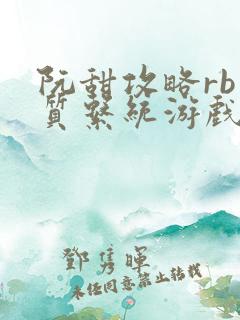 阮甜攻略rb
质系统游戏
鄧隽暉
未经同意禁止转载